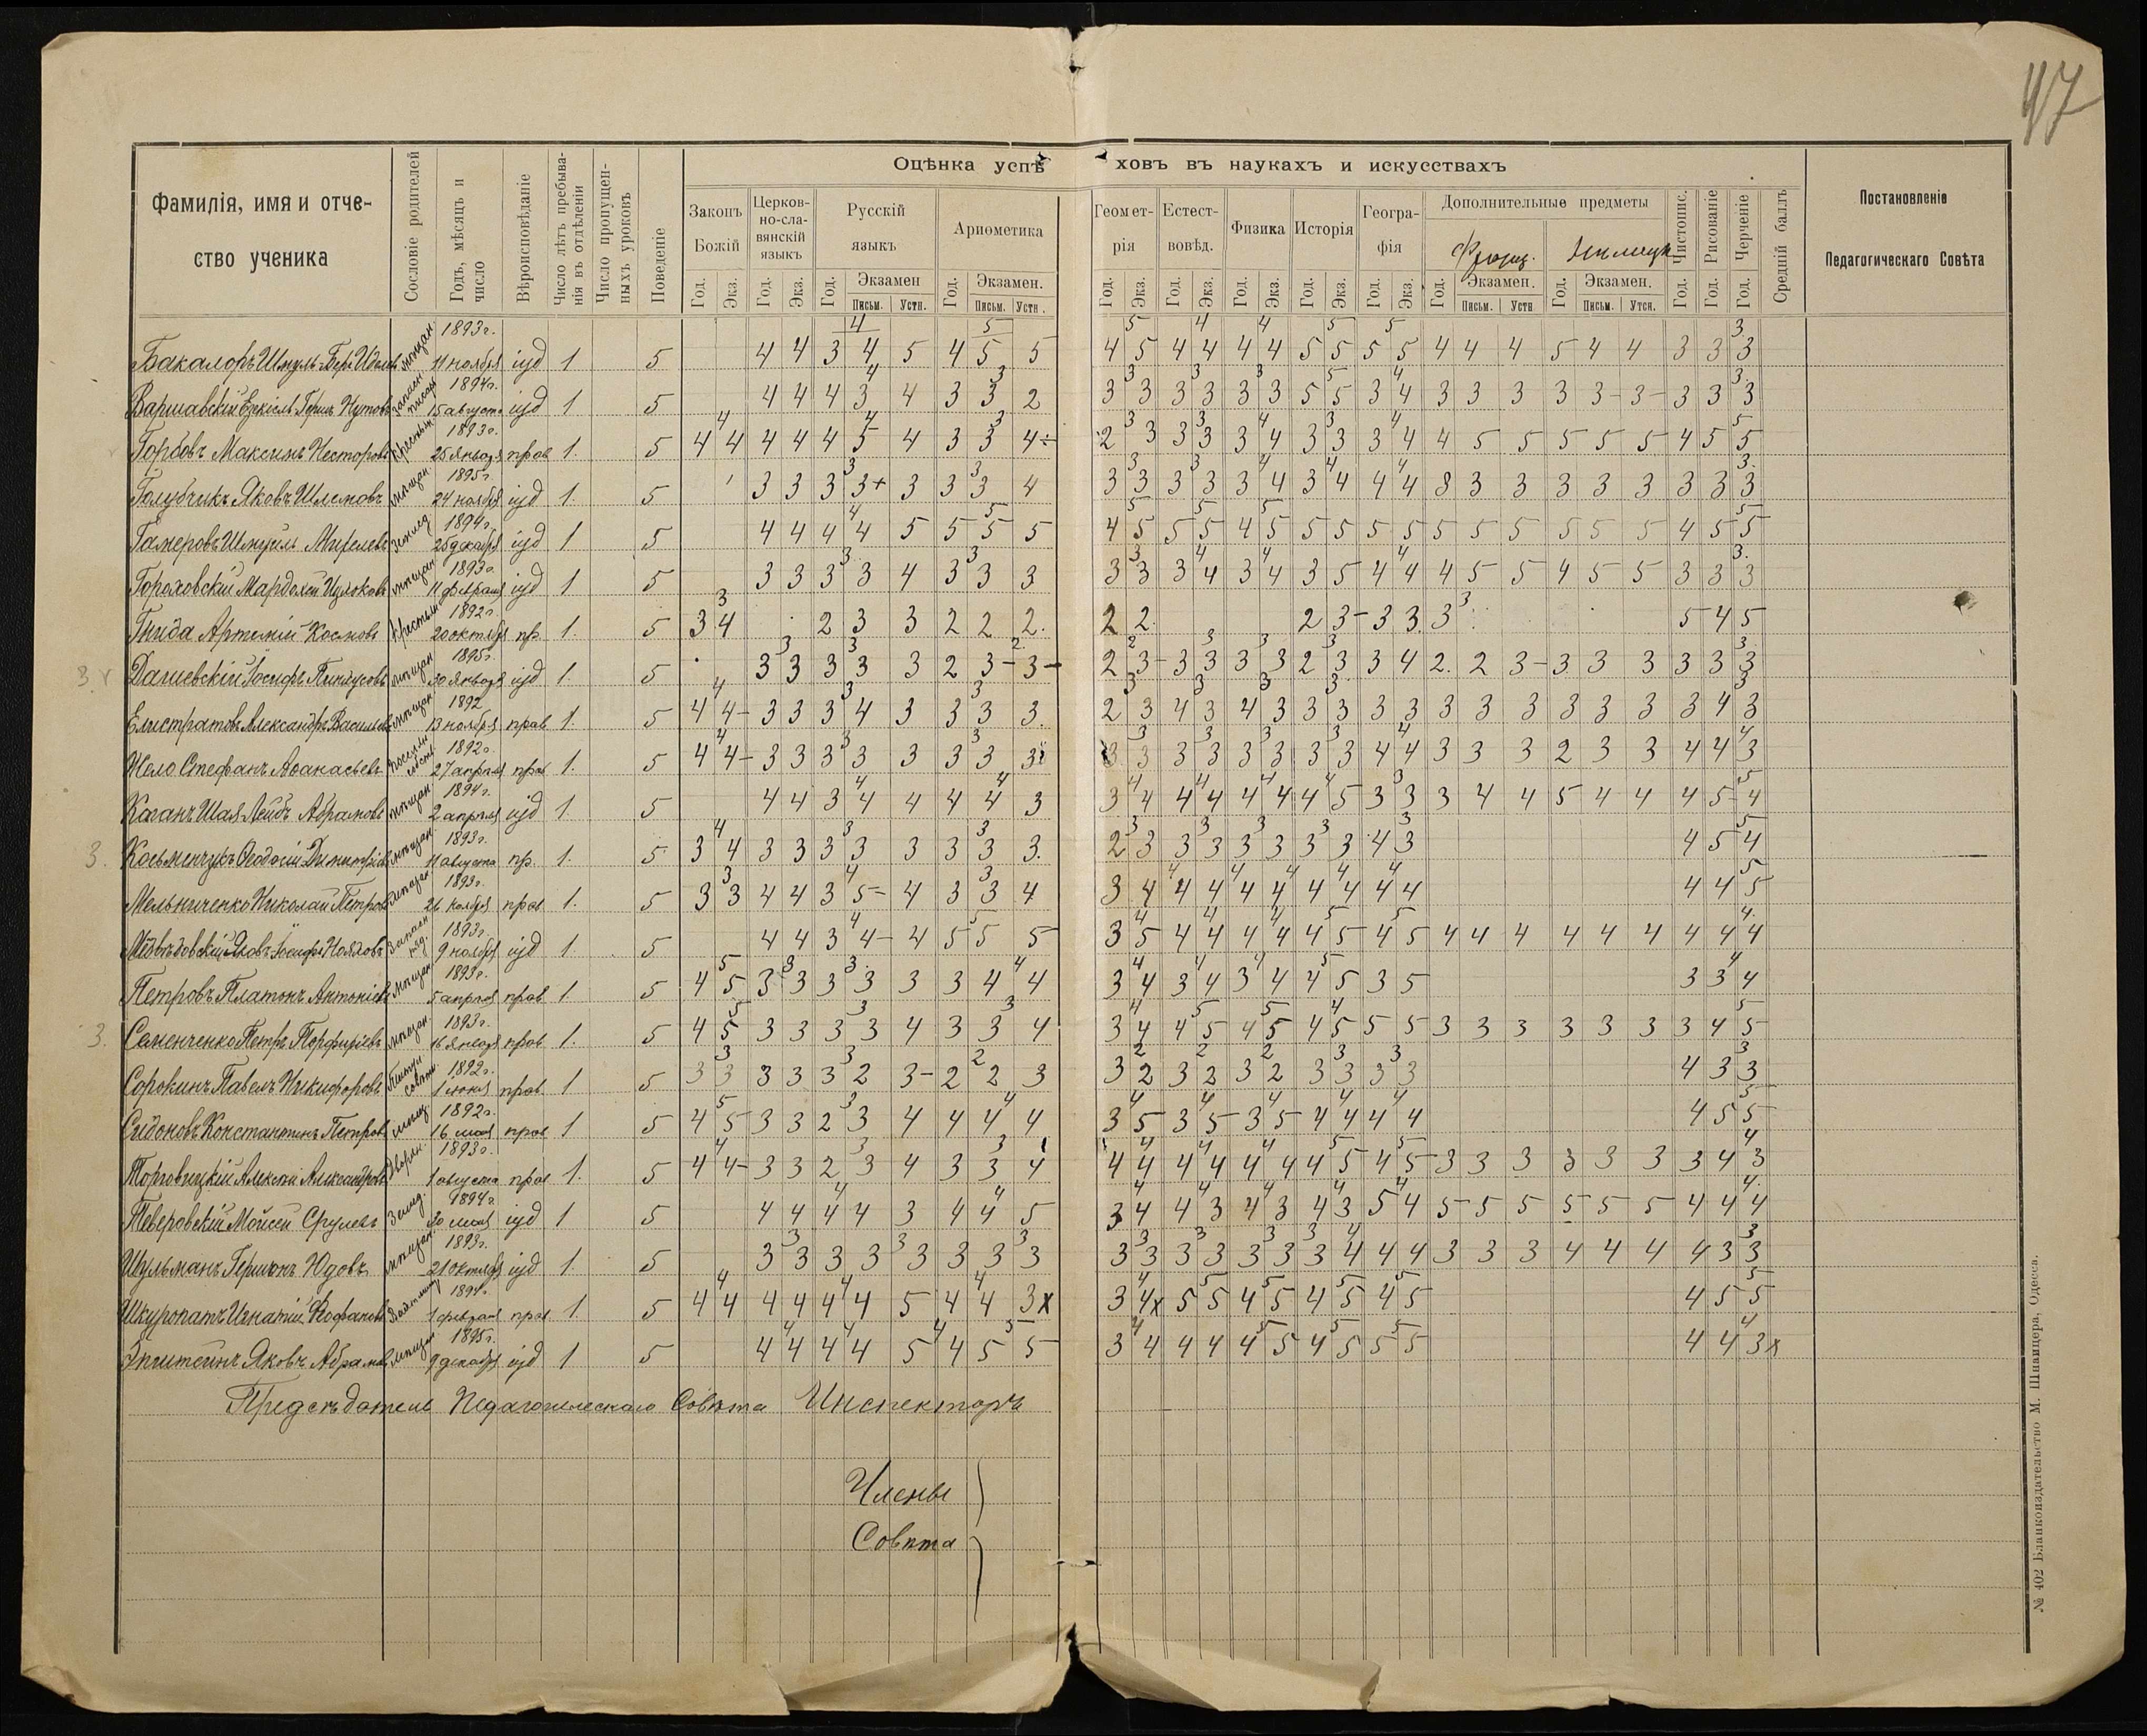 47
Фамилія, имя и отче-
ство ученика
Сословіе родителей
Годъ, мѣсяцъ и
число
Вѣроисповѣданіе
Число лѣтъ пребыва-
нія въ отдѣленіи
Число пропущен-
ныхъ уроковъ
Поведеніе
Оцѣнка успѣховъ въ наукахъ и искусствахъ
Законъ
Божій
Церков-
но-сла-
вянскій
языкъ
Русскій
языкъ
Ариометика
Геомет-
рія
Естест-
вовѣд.
Физика
Исторія
Геогра-
фія
Дополнительные предметы
Чистопис.
Рисованіе
Черченіе
Средній баллъ
Постановленіе
Педагогическаго Совѣта
Год. Экз. Год. Экз. Год. Экзамен Письм. Устн. Год. Экзамен. Письм. Устн.
Год. Экз. Год. Экз. Год. Экз. Год. Экз. Год. Экз. Год. Экзамен. Письм. Устн Год. Экзамен. Письм. Утсн. Год. Год. Год.
1893г. 4 5 5 4 4 5 5 3
Бакалоръ Шмуль-Беръ мѣщан 11 ноября іуд 1 5 4 4 3 4 5 4 5 5 4 5 4 4 4 4 5 5 5 5 4 4 4 5 4 4 3 3 3
1894г. 4 3 3 3 3 5 4 3.
Варшавскій 15 августа іуд 1 5 4 4 4 3 4 3 3 2 3 3 3 3 3 3 5 5 3 4 3 3 3 3 3- 3- 3 3 3
1893г. 4 4 3 3 3 4 3 4 5
Горбовъ Максимъ Несторовъ 25 января прав 1. 5 4 4 4 4 4 5 4 3 3 4÷ 2 3 3 3 3 4 3 3 3 4 4 5 5 5 5 5 4 5 5
1895г. 3 3 3 3 4 4 4 3.
Голубчикъ Яковъ Шлемовъ мѣщан. 24 ноября іуд 1. 5 3 3 3 3+ 3 3 3 4 3 3 3 3 3 4 3 4 4 4 3 3 3 3 3 3 3 3 3
1894г. 4 5 5 5 5 5
Гамеровъ Шмуиль 25 декабря іуд 1 5 4 4 4 4 5 5 5 5 4 5 5 5 4 5 5 5 5 5 5 5 5 5 5 5 4 5 5
1893г. 3. 3 3 4 4 4 3.
Гороховскій Мардохей мѣщан 11 февраля іуд 1 5 3 3 3 3 4 3 3 3 3 3 3 4 3 4 3 5 4 4 4 5 5 4 5 5 3 3 3
1892г. 3 3
Гнида Артемій Космовъ крестьян 20 октября пр. 1. 5 3 4 2 3 3 2 2 2. 2 2. 2 3- 3 3. 3 5 4 5
3. 1895г. 3 3 2. 2 3 3 3 3
Дашевскій Іосифъ Пинхусовъ мѣщан 30 января іуд 1. 5 3 3 3 3 3 2 3- 3- 2 3- 3 3 3 3 2 3 3 4 2. 2 3- 3 3 3 3 3 3
1892 4 3 3 3 3 3 3. 3
Елистратовъ Александръ Васильевъ мѣщан 13 ноября прав 1. 5 4 4- 3 3 3 4 3 3 3 3. 2 3 4 3 4 3 3 3 3 3 3 3 3 3 3 3 3 4 3
1892г. 4 3 3 3 3 3 3 4 4
Стефанъ Аѳанасьевъ 27 апреля прав 1. 5 4 4- 3 3 3 3 3 3 3 3 3 3 3 3 3 3 3 3 4 4 3 3 3 2 3 3 4 4 3
1894г. 4 4 4 4 4 4 3 5
Коганъ Шая Лейбъ Абрамовъ мѣщан 2 апреля іуд 1. 5 4 4 3 4 4 4 4 3 3 4 4 4 4 4 4 5 3 3 3 4 4 5 4 4 4 5 4
3. 1893г. 4 3 3 3 3 3 3 3 5
Косьменчукъ Ѳеодосій Димитріевъ мѣщан 11 августа пр. 1. 5 3 4 3 3 3 3 3 3 3 3. 2 3 3 3 3 3 3 3 4 3 4 5 4
1893г. 3 4 3 4 4 4 4 5
Мельниченко Николай Петровъ 26 ноября прав 1. 5 3 3 4 4 3 5- 4 3 3 4 3 4 4 4 4 4 4 4 4 4 4 4 5
1893г. 4 5 4 4 4 5 5 4.
9 ноября іуд 1. 5 4 4 3 4- 4 5 5 5 3 5 4 4 4 4 4 5 4 5 4 4 4 4 4 4 4 4 4
1893г. 5 3 3. 4 4 4 4 5 4
Петровъ Платонъ Антоніевъ мѣщан 5 апреля прав. 1. 5 4 5 3 3 3 3 3 3 4 4 3 4 3 4 3 4 4 5 3 5 3 3 4
3. 1893г. 5 3 3 4 5 5 4 5
Семенченко Петръ Порфиріевъ мѣщан. 16 января прав 1. 5 4 5 3 3 3 3 4 3 3 4 3 4 4 5 4 5 4 5 5 5 3 3 3 3 3 3 3 4 5
1892г. 3 3 2 2 2 2 3 3 3
Сорокинъ Павелъ Никифоровъ 1 іюня прав. 1 5 3 3 3 3 3 2 3- 2 2 3 3 2 3 2 3 2 3 3 3 3 4 3 3
1892г. 5 3 4 4 4 4 4 4 5
Сидоновъ Константинъ Петровъ мѣщ. 16 мая прав 1 5 4 5 3 3 2 3 4 4 4 4 3 5 3 5 3 5 4 4 4 4 4 5 5
1893г. 4 3 3 4 4 4 5 5 4
Торговицкій Алексѣй Александровъ дворян. 1 августа прав 1. 5 4 4- 3 3 2 3 4 3 3 4 4 4 4 4 4 4 4 5 4 5 3 3 3 3 3 3 3 4 3
1894г. 4 4 4 4 4 4 4 4.
Теверовскій Мойсей Срулевъ 30 мая іуд 1 5 4 4 4 4 3 4 4 5 3 4 4 3 4 3 4 3 5 4 5 5 5 5 5 5 4 4 4
1893г. 3 3 3 3 3 3 3 4 3
Шульманъ Гершонъ Юдовъ мѣщан. 21 октября іуд 1. 5 3 3 3 3 3 3 3 3 3 3 3 3 3 3 3 4 4 4 3 3 3 4 4 4 4 3 3
1894г. 4 4 4 4 5 5 5 5 5
Шкуропатъ Игнатій 1 февраля прав 1. 5 4 4 4 4 4 4 5 4 4 3х 3 4х 5 5 4 5 4 5 4 5 4 5 5
1895г. 4 4 4 5 4 5 5 5 4
Эпштейнъ Яковъ Абрамовъ мѣщан 9 декабря іуд 1 5 4 4 4 4 5 4 5 5 3 4 4 4 4 5 4 5 5 5 4 4 3х
Предсѣдатель Педагогическаго Совѣта Инспекторъ
Члены
Совѣта
№ 402 Бланкоиздательство М. Шпанцера, Одесса.